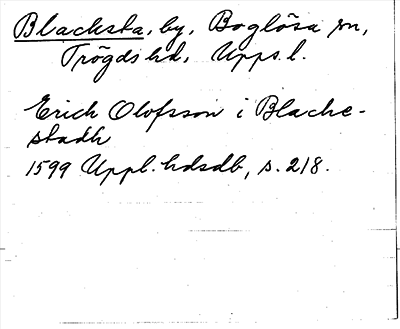 Blacksta, by, Boglösa sn,
Trögds hd, Upps. l.
Erich Olofsson i Blache-
stadh
1599 Uppl. hdsdb, s. 218.